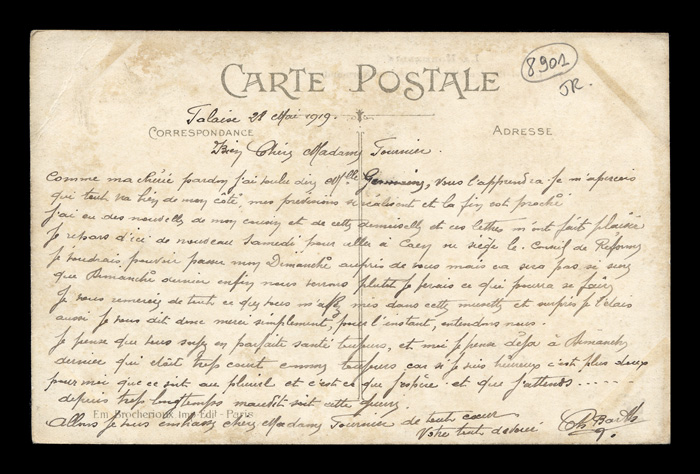 8901
JR.
CARTE POSTALE
Falaise 22 Mai 1919.
CORRESPONDANCE
ADRESSE
Bien Chère Madame Fournier.
Comme ma chère pardon j'ai voulu dire Mlle Germaine, vous l'apprendra. Je m'aperçois
que tout va bien de mon côté, mes prévisions se réalisent et la fin est proche
J'ai eu des nouvelles de mon cousin et de cette demoiselle et ces lettres m'ont fait plaisir
Je repars d'ici de nouveau Samedi pour aller à Caen où siège le Conseil de Réforme
Je voudrais pouvoir passer mon Dimanche auprès de vous mais ca sera pas si sûr
que Dimanche dernier enfin nous verrons plutôt je ferais ce qui pourra se faire
Je vous remercie de tout ce que vous m'avez mis dans cette musette et surpris je l'étais
aussi je vous dit donc merci simplement, pour l'instant, entendons nous.
Je pense que vous soyez en parfaite santé toujours, et moi je pense déjà à Dimanche
dernier qui était trop court comme toujours car si je suis heureux c'est plus doux
pour moi que ce soit au pluriel et c'est ce que j'espère et que j'attends.....
depuis trop longtemps maudit soit cette guerre.
Em. Brocherioux imp. Edit - Paris
Allons je vous embrasse chère Madame Fournier de tout cœur
Votre tout dévoué
Ch. Barth